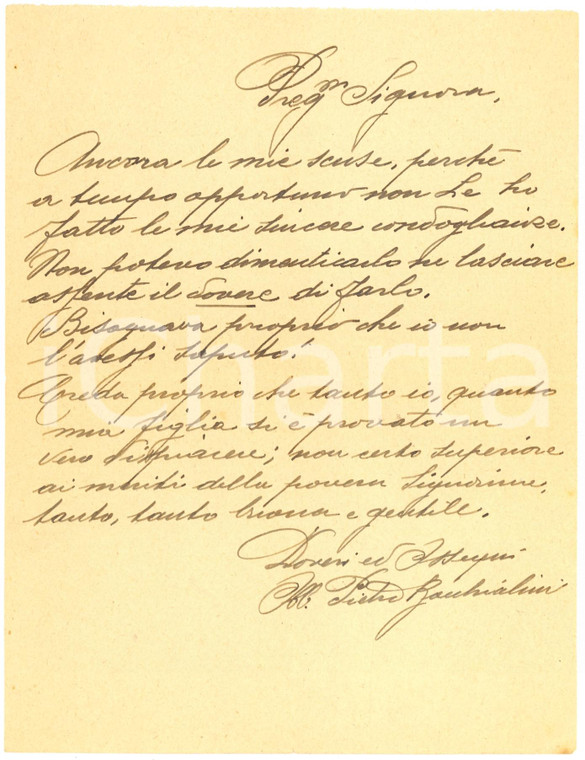 Preg.ma Signora,
Ancora le mie scuse, perchè
a tempo opportuno non Le ho
fatto le mie sincere condoglianze.
Non potevo dimenticarlo ne lasciare
assente il dovere di farlo.
Bisognava proprio che io non
l'avessi saputo!
Creda proprio che tanto io, quanto
mia figlia si è provato un
vero dispiacere; non certo superiore
ai meriti della povera Signorina,
tanto, tanto buona e gentile.
Doveri ed Ossequi
Pietro
iCharta